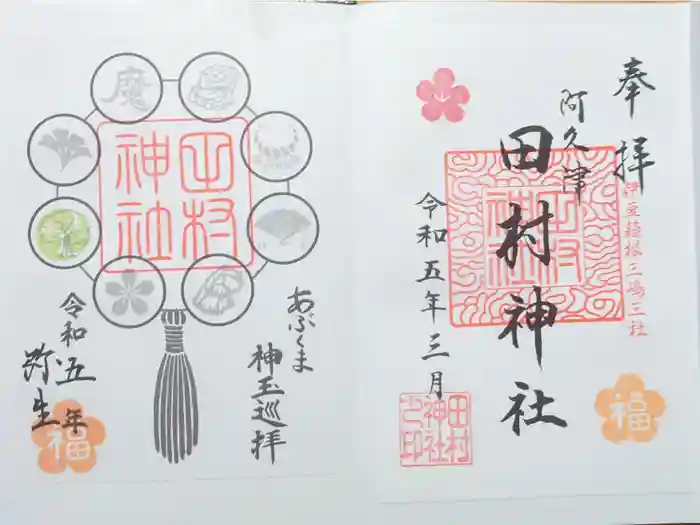 奉拝
阿久津
田村神社
伊豆箱根三嶋三社
令和五年三月
田村神社
田村神社之印
福
魔
田村神社
あぶくま
神玉巡拝
令和五年
弥生
福